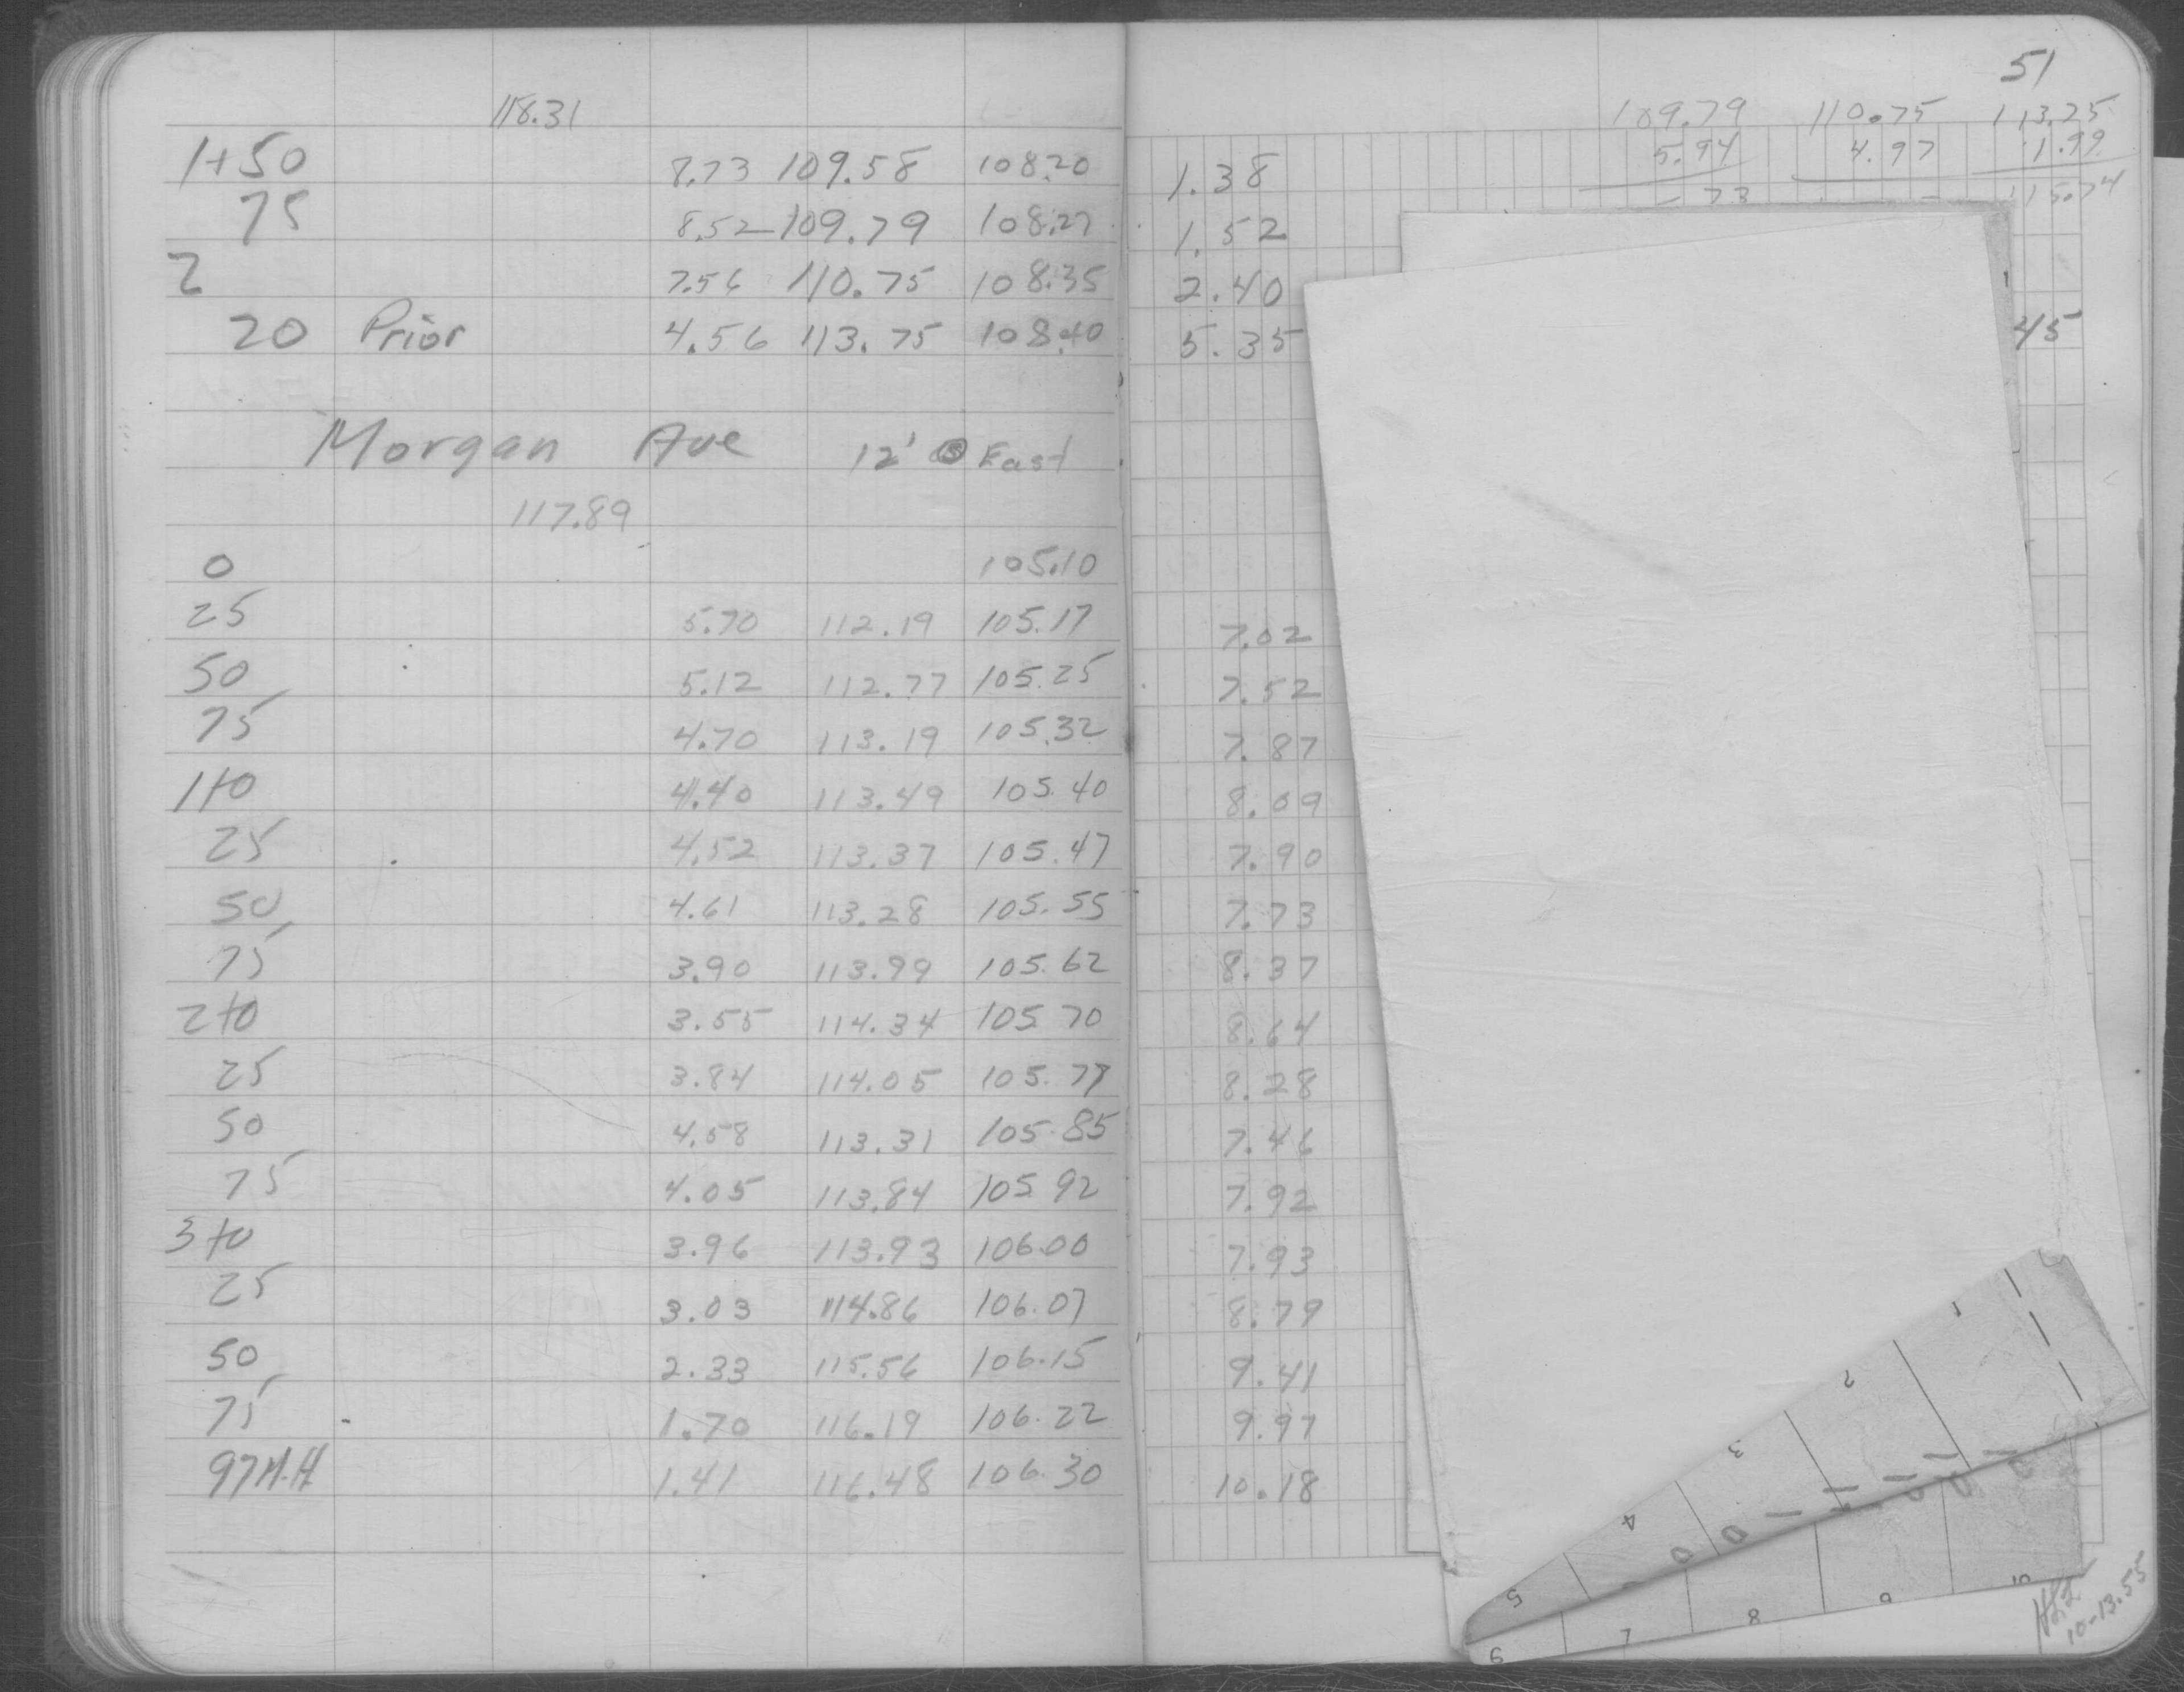 51
118.31 109.79 110.75 113.25
5.94 4.97 1.99
73 115.74
1+50 8.73 109.58 108.20 1.38
75 8.52 109.79 108.27 1.52
2 7.56 110.75 108.35 2.40
20 Prior 4.56 113.75 108.40 5.35 45
Morgan Ave 12' East
117.89
0 105.10
25 5.70 112.19 105.17 7.02
50 5.12 112.77 105.25 7.52
75 4.70 113.19 105.32 7.87
1+0 4.40 113.49 105.40 8.09
25 4.52 113.37 105.47 7.90
50 4.61 113.28 105.55 7.73
75 3.90 113.99 105.62 8.37
2+0 3.55 114.34 105.70 8.64
25 3.84 114.05 105.77 8.28
50 4.58 113.31 105.85 7.46
75 4.05 113.84 105.92 7.92
3+0 3.96 113.93 106.00 7.93
25 3.03 114.86 106.07 8.79
50 2.33 115.56 106.15 9.41
75 1.70 116.19 106.22 9.97
97 M.H 1.41 116.48 106.30 10.18
1
2
3
4
5
6
7
8
9
10
10-13.55